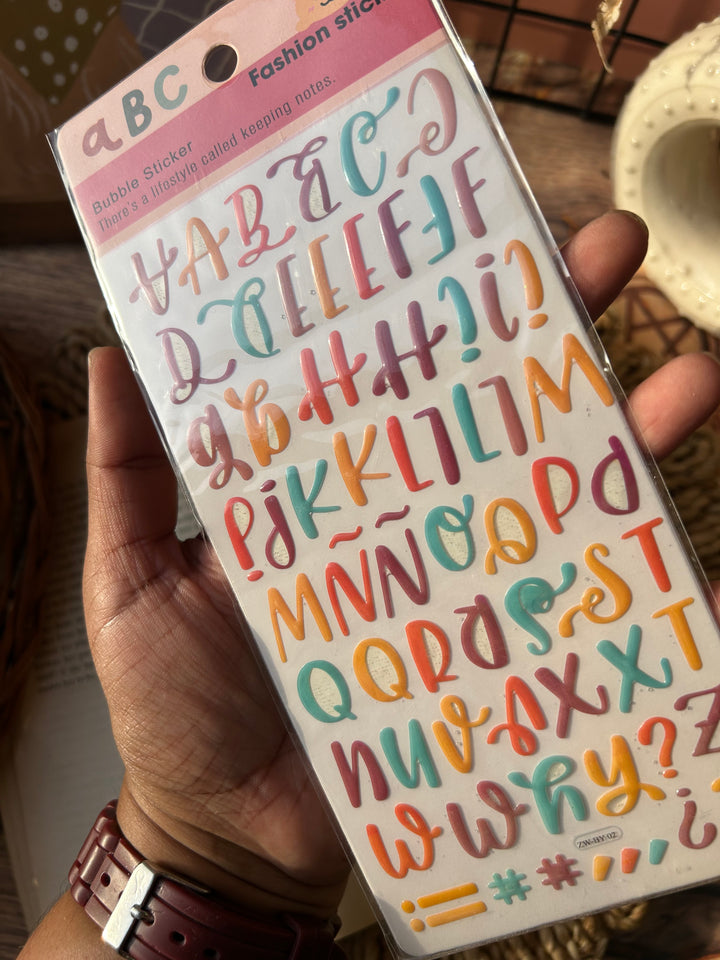 aBC
Fashion stic
Bubble Sticker
There's a lifestyle called keeping notes.
A A B B C C
D D E E E F F F
g g H H ! i !
P i K K L L L L M
M Ñ Ñ O O P P
Q Q R R S S T
n u v s x x T
w w h y ? Z
! # # ?
ZW-BY-02